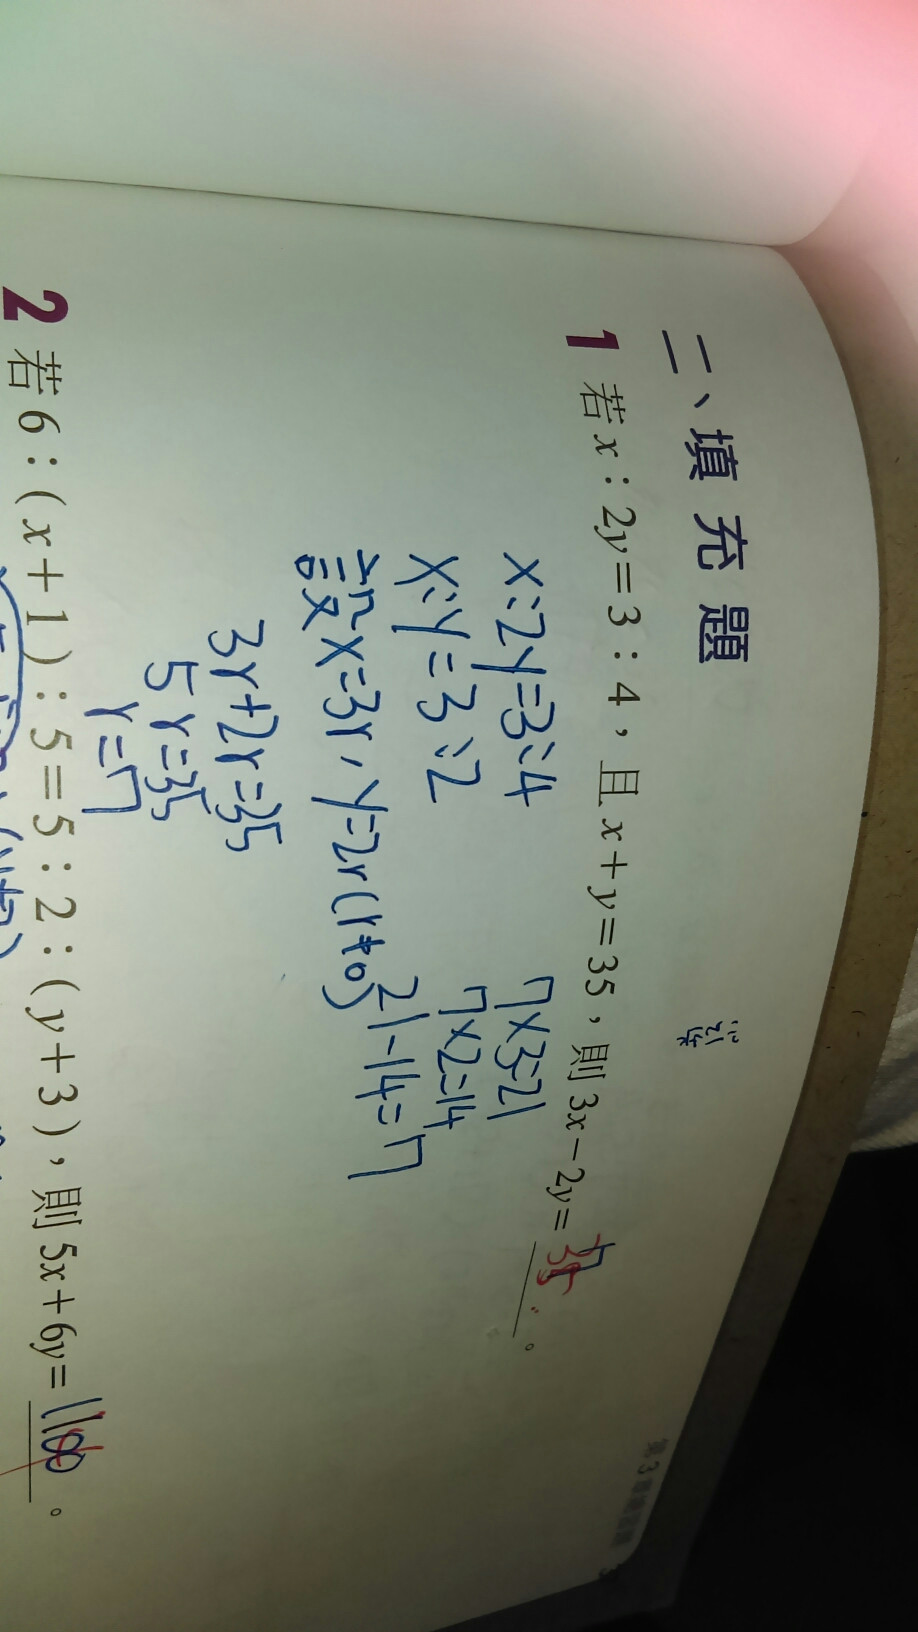 二、填充題
1 若x：2y＝3：4，且x＋y＝35，則3x－2y＝35。
x:2y=3:4
x:y=3:2
設x=3r，y=2r(r≠0)
3r+2r=35
5r=35
r=7
7×3=21
7×2=14
21-14=7
2 若6：(x＋1)：5＝5：2：(y＋3)，則5x＋6y＝